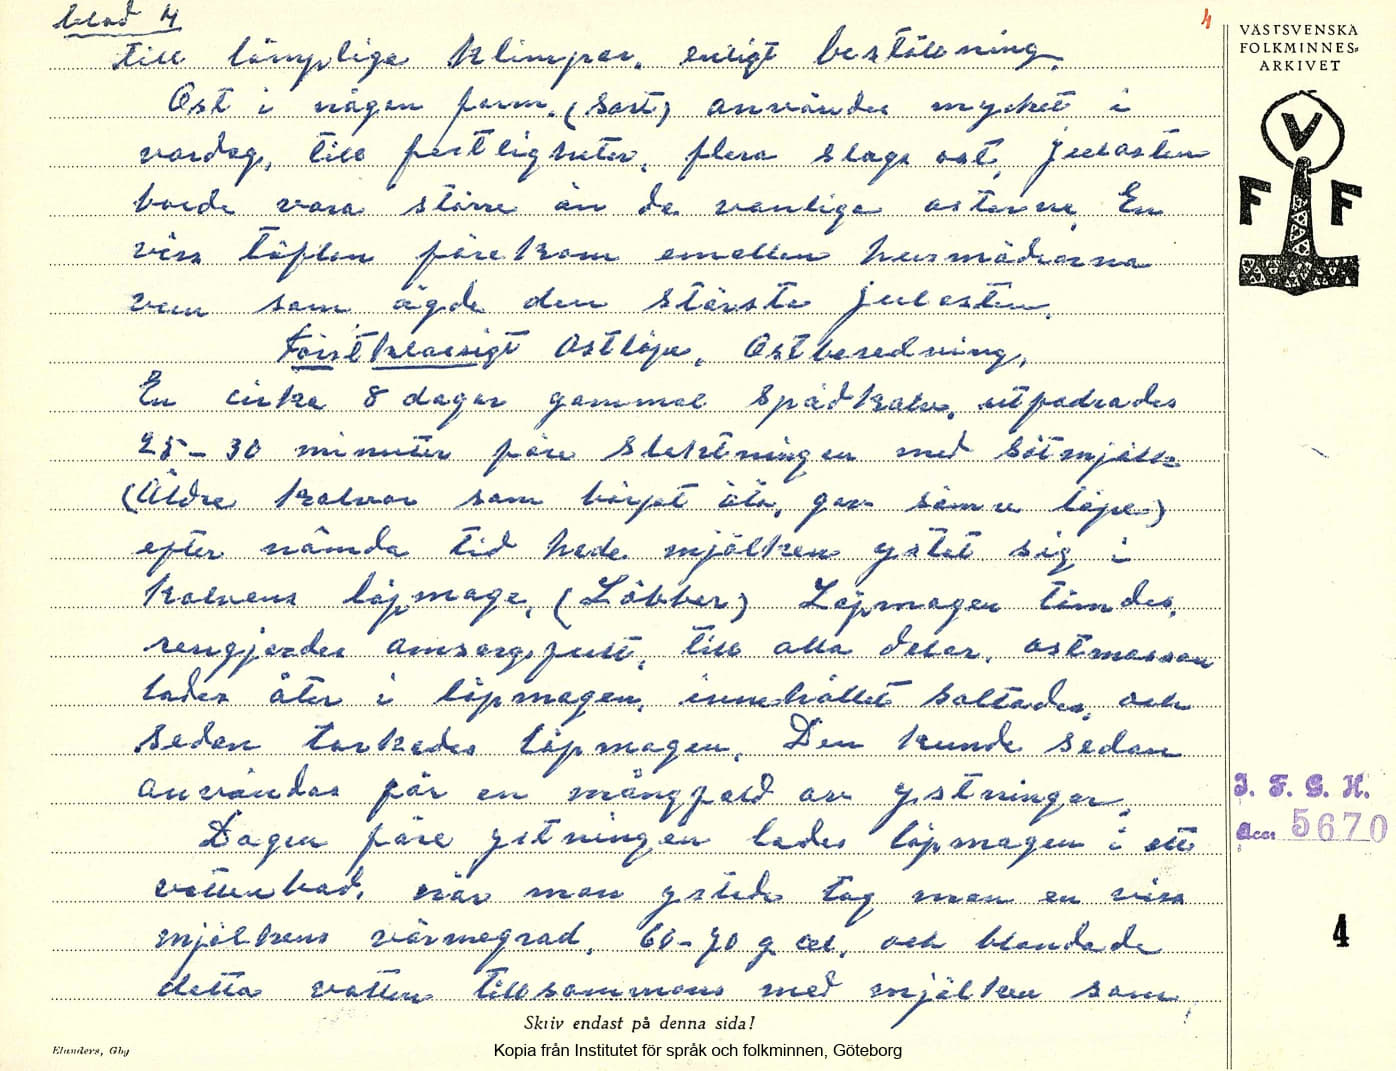 blad 4
4
till lämpliga klimpar. enligt beställning.
Ost i någon form. (Sort) användes mycket i
vardag, till festligheter, flera slags ost, julosten
borde vara större än de vanliga ostarne. En
viss täflan förekom emellan husmödrarna
vem som ägde den största julosten.
Förstklassigt Ostlöpe, Ostberedning,
En cirka 8 dagar gammal Spädkalv, utfodrades
25-30 minuter före Slaktningen med Sötmjölk
(Äldre kalvar som börjat äta, gav sämre löpe)
efter nämda tid hade mjölken ystat sig i
kalvens löpmage, (Löbber) Löpmagen tömdes,
rengjordes omsorgsfullt, till alla delar, ostmassan
lades åter i löpmagen, innehållet saltades, och
sedan torkades löpmagen. Den kunde sedan
användas för en mångfald av ystningar.
Dagen före ystningen lades löpmagen i ett
vattenbad, när man ystade tog man en viss
mjölkens värmegrad, 60-70 g cel, och blandade
detta vatten tillsammans med mjölken som
Skriv endast på denna sida!
Elanders, Gbg
Kopia från Institutet för språk och folkminnen, Göteborg
VÄSTSVENSKA
FOLKMINNES-
ARKIVET
V
F F
I. F. G. H.
Acc: 5670
4